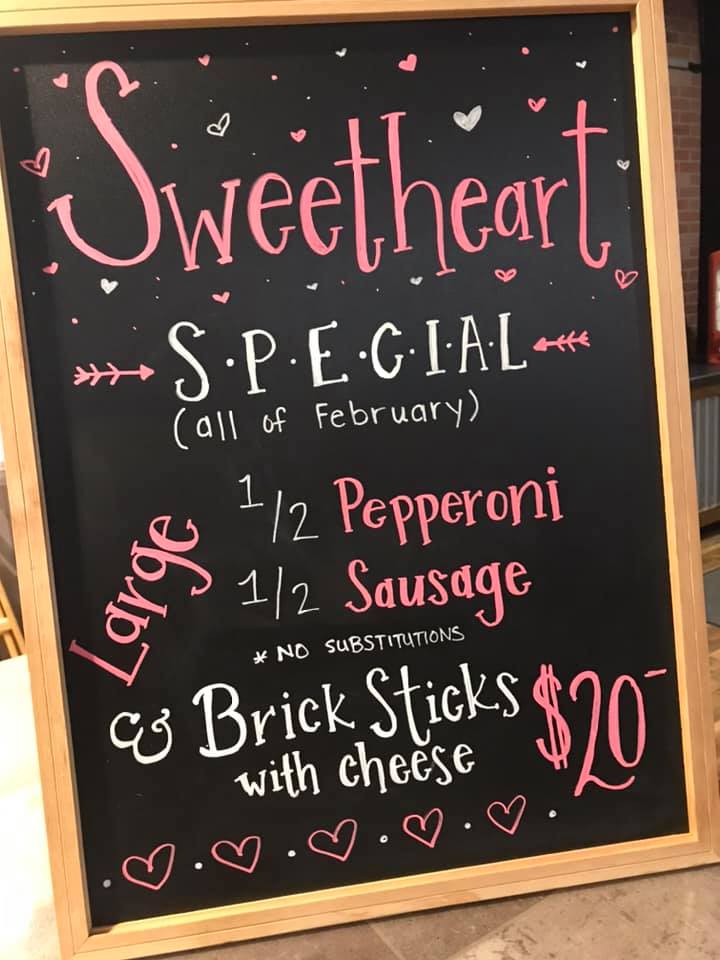 Sweetheart
S·P·E·C·I·A·L
(all of February)
Large
1/2 Pepperoni
1/2 Sausage
* NO SUBSTITUTIONS
& Brick Sticks
with cheese
$20-